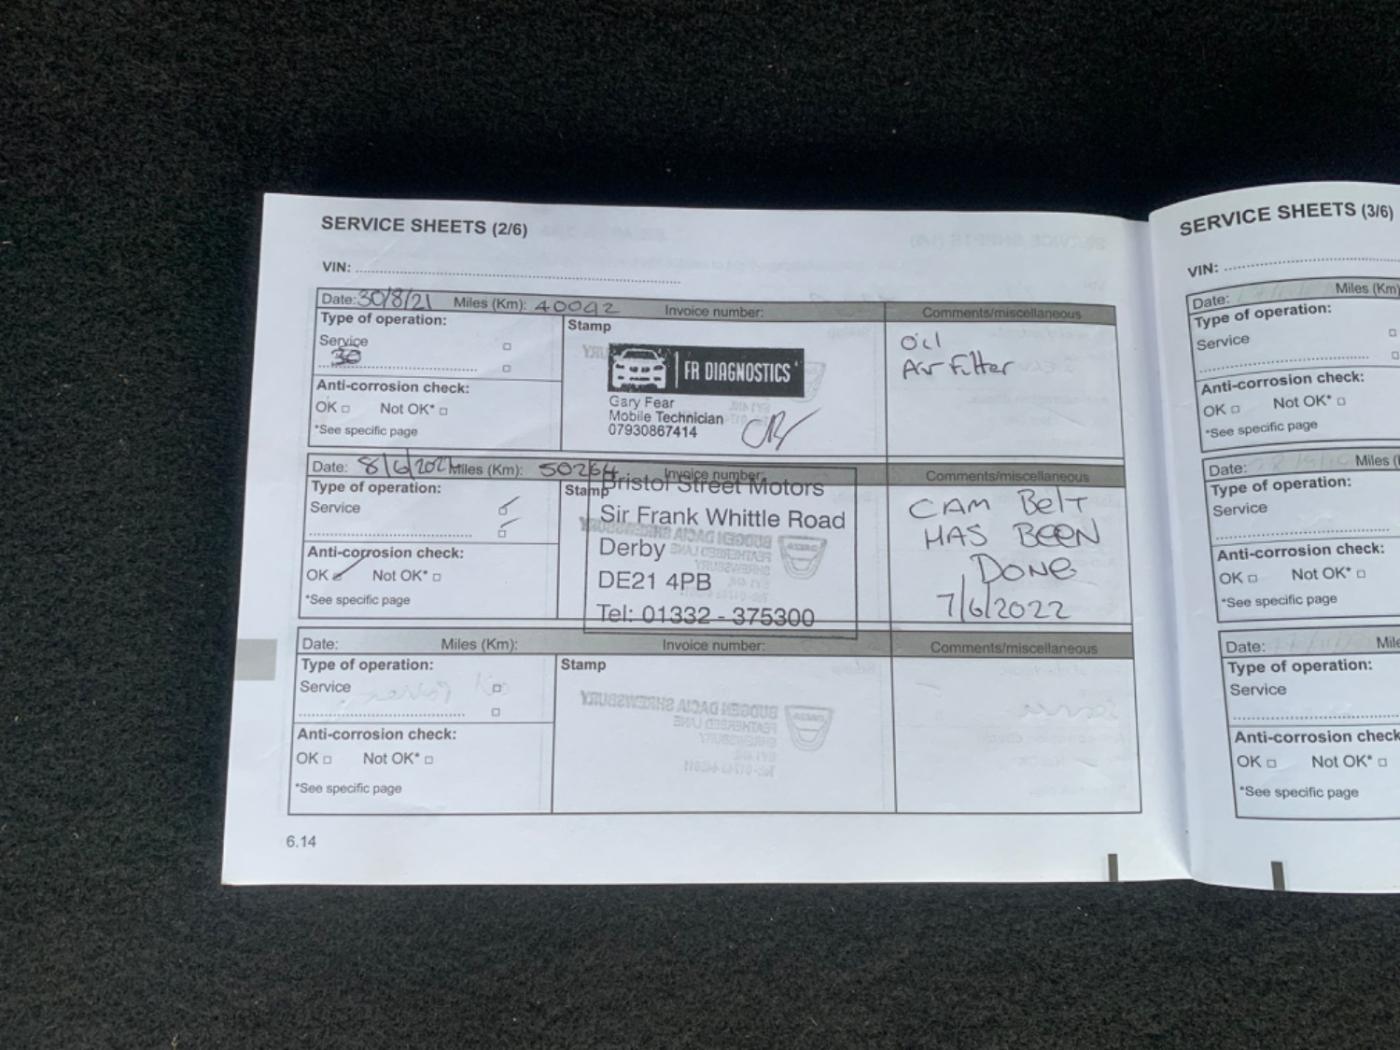 SERVICE SHEETS (2/6)
VIN:
Date: 30/8/21 Miles (Km): 40092 Invoice number: Comments/miscellaneous
Type of operation:
Service
30
Anti-corrosion check:
OK Not OK*
*See specific page
Stamp
FR DIAGNOSTICS
Gary Fear
Mobile Technician
07930867414
Oil
Air Filter
Date: 8/6/2022 Miles (Km): 50264 Invoice number: Comments/miscellaneous
Type of operation:
Service
Anti-corrosion check:
OK Not OK*
*See specific page
Stamp
Bristol Street Motors
Sir Frank Whittle Road
Derby
DE21 4PB
Tel: 01332 - 375300
CAM BelT
HAS BEEN
DONE
7/6/2022
Date: Miles (Km): Invoice number: Comments/miscellaneous
Type of operation:
Service
Anti-corrosion check:
OK Not OK*
*See specific page
Stamp
6.14
SERVICE SHEETS (3/6)
VIN:
Date: Miles (Km)
Type of operation:
Service
Anti-corrosion check:
OK Not OK*
*See specific page
Date: Miles (
Type of operation:
Service
Anti-corrosion check:
OK Not OK*
*See specific page
Date: Mile
Type of operation:
Service
Anti-corrosion check
OK Not OK*
*See specific page